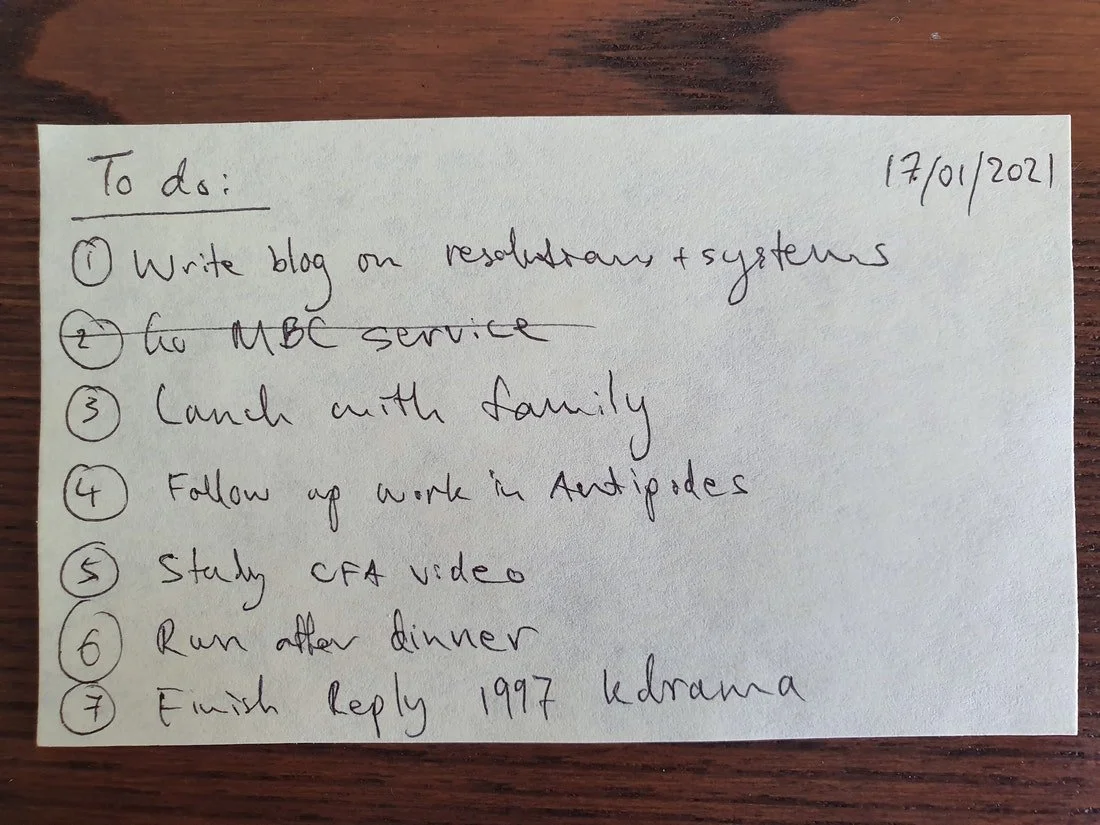 To do:
17/01/2021
① Write blog on resolutions + systems
② Go MBC service
③ Lunch with family
④ Follow up work in Antipodes
⑤ Study CFA video
⑥ Run after dinner
⑦ Finish Reply 1997 kdrama